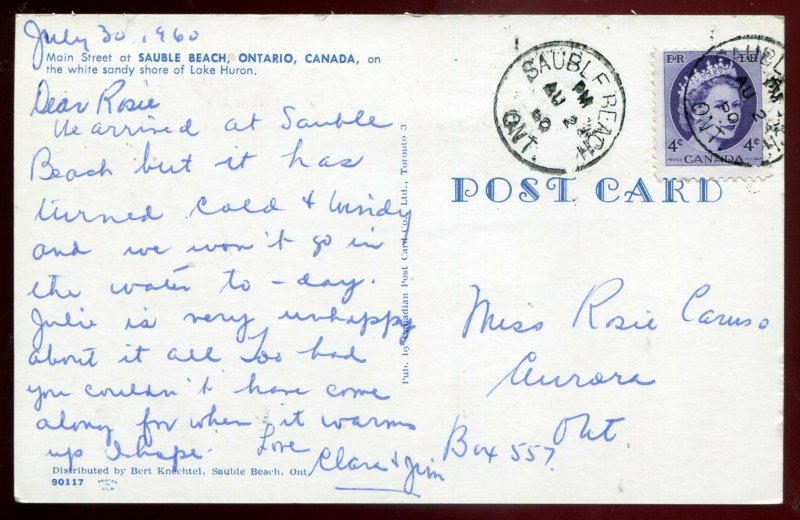 July 30, 1960
Main Street at SAUBLE BEACH, ONTARIO, CANADA, on
the white sandy shore of Lake Huron.
Dear Rosie
We arrived at Sauble
Beach but it has
turned cold & windy
and we won't go in
the water to-day.
Julie is very unhappy
about it all Too bad
you couldn't have come
along for when it warms
up I hope. Love
Clara & Jim
Distributed by Bert Knechtel, Sauble Beach, Ont.
90117
Pub. by Canadian Post Card Co., Ltd., Toronto 3
SAUBLE BEACH
PM
AU 2
60
ONT.
E R
4¢ CANADA 4¢
AU 2
PM
60
ONT
POST CARD
Miss Rosie Caruso
Aurora
Ont.
Box 557